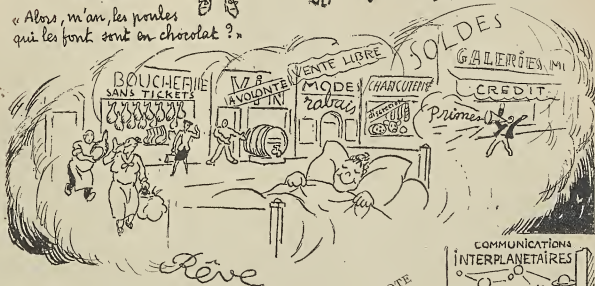 « Alors, m'an, les poules
qui les font sont en chocolat ? »
BOUCHERIE
SANS TICKETS
A VOLONTÉ
VENTE LIBRE
MODES
rabais
CHARCUTERIE
discrétion
SOLDES
GALERIES MI
CREDIT
Primes
Rêve
COMMUNICATIONS
INTERPLANETAIRES